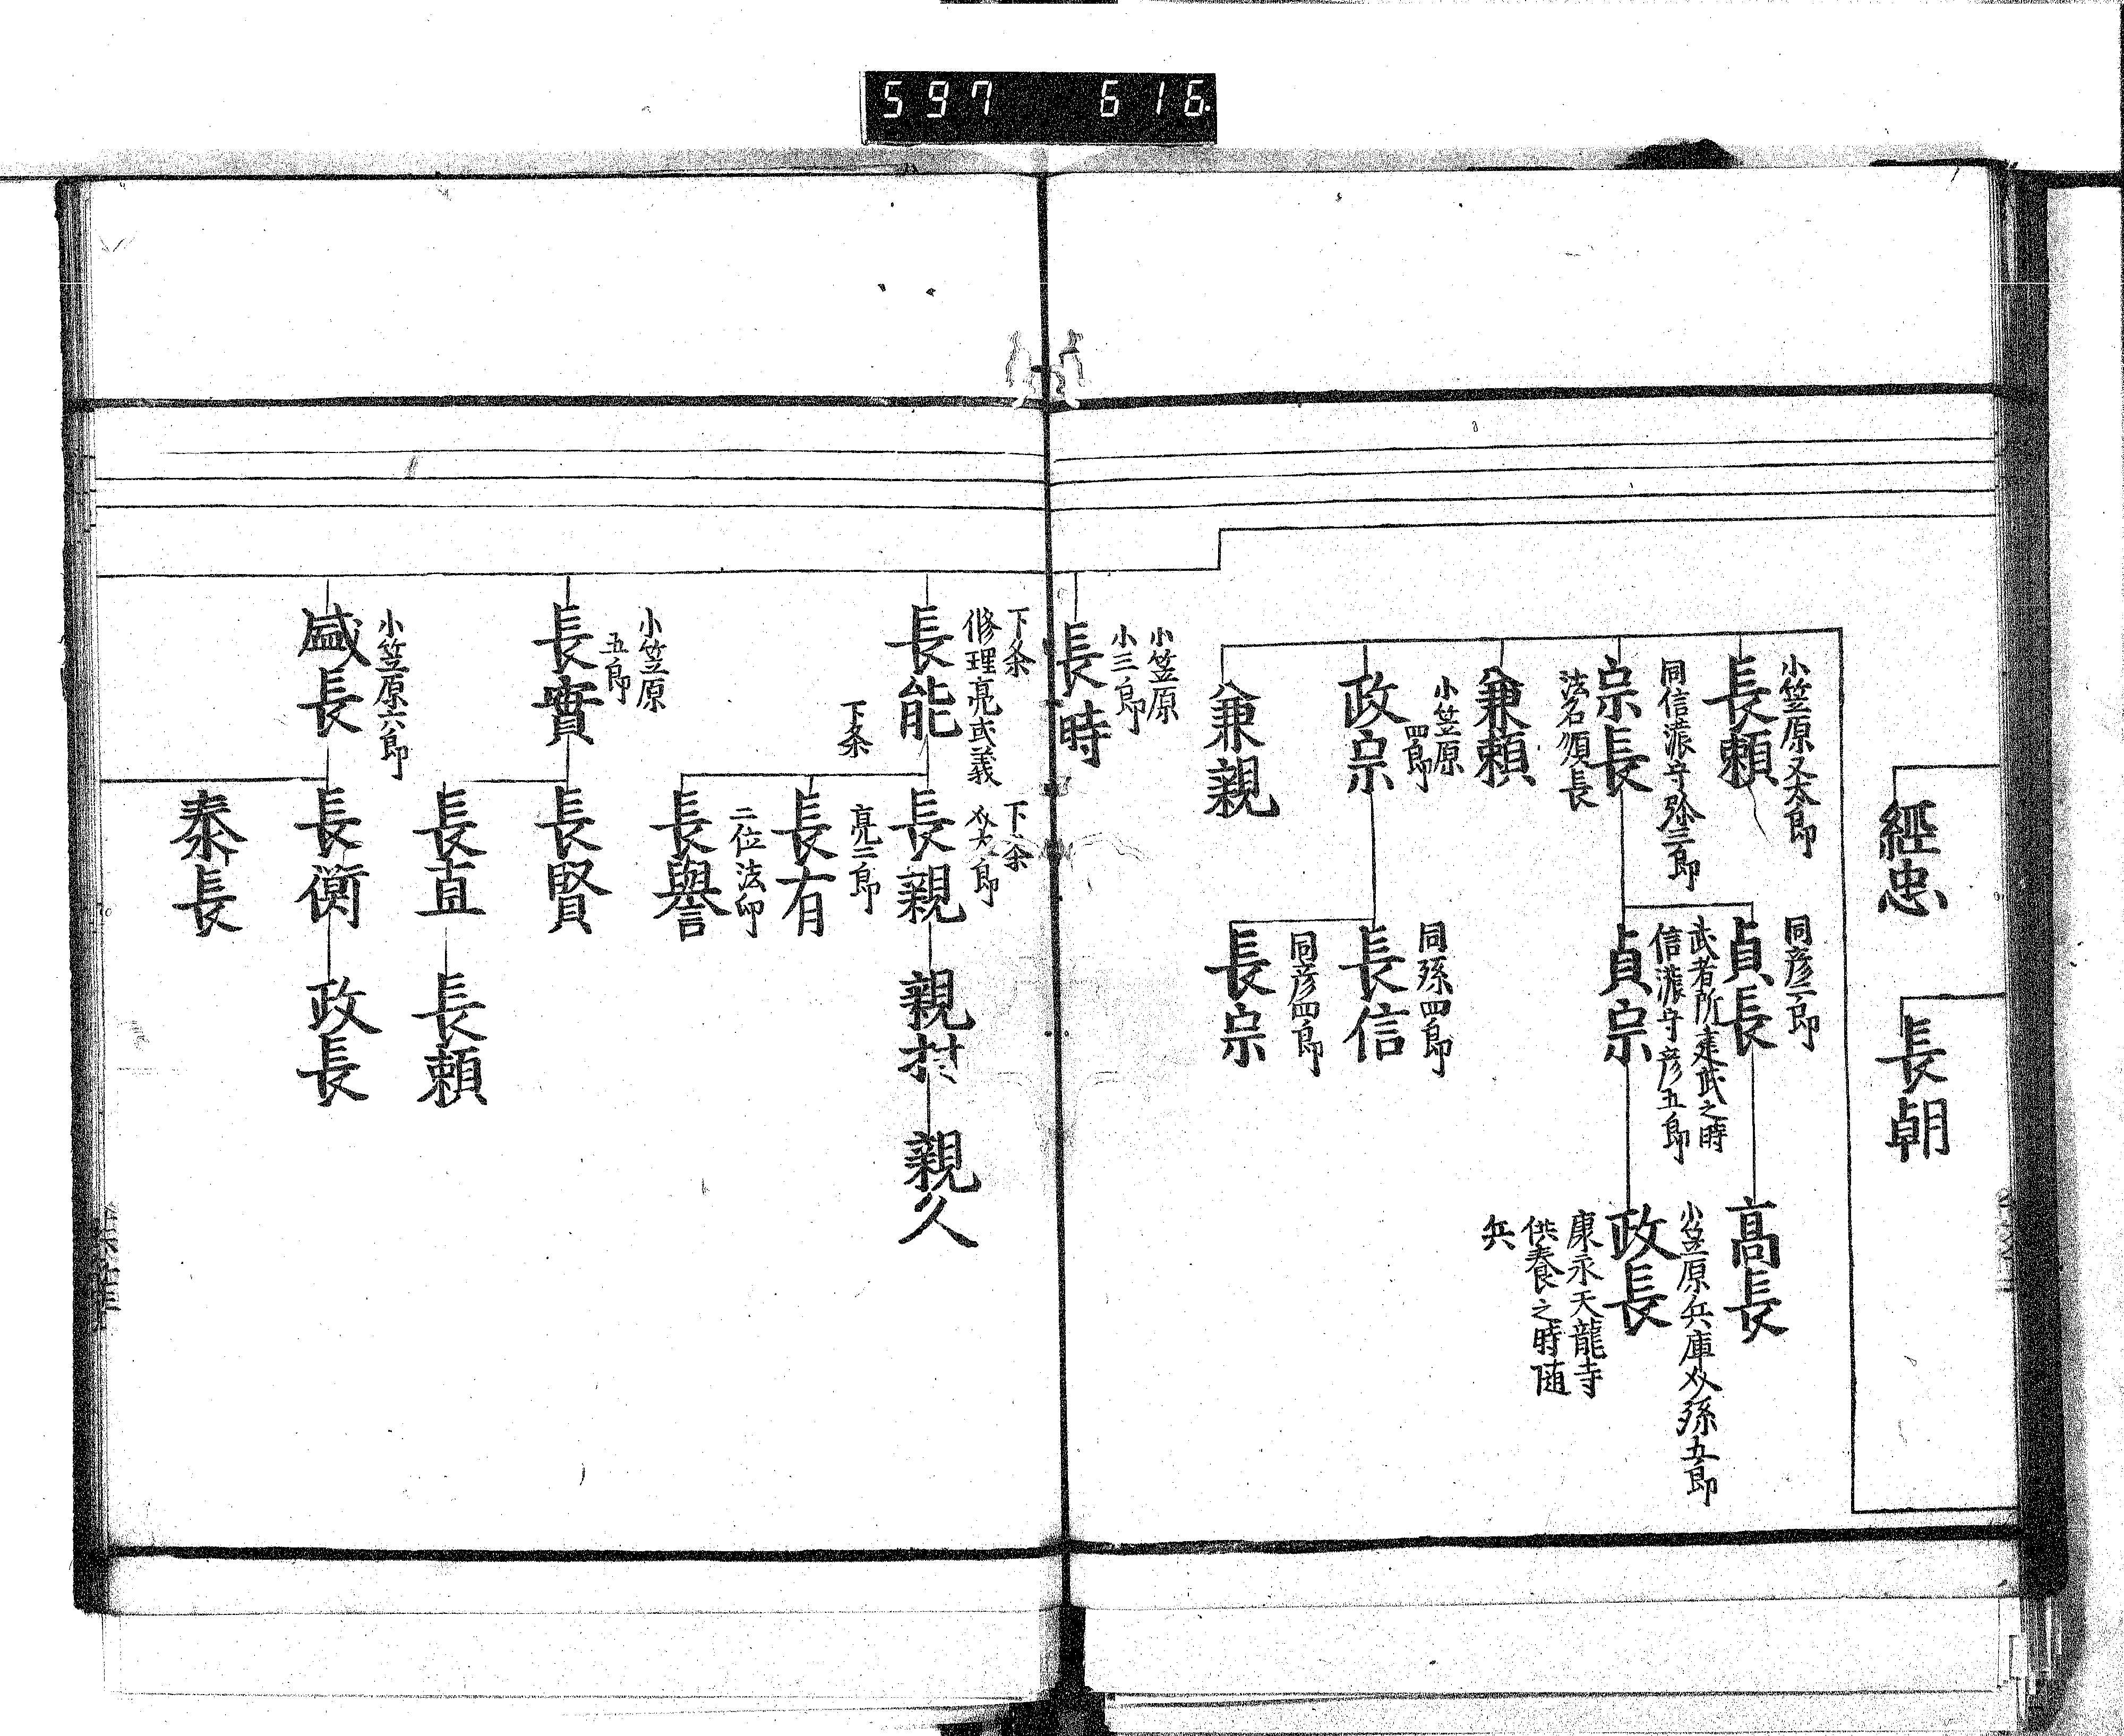 597 616
經忠
長朝
小笠原又太郎
長頼
同彦二郎
貞長
高長
同信濃守孫三郎
宗長
法名順長
武者所建武之時
信濃守彦五郎
貞宗
小笠原兵庫助孫五郎
政長
康永天龍寺
供養之時随
兵
兼頼
小笠原
四郎
政宗
同孫四郎
長信
同彦四郎
長宗
兼親
小笠原
小三郎
長時
下条
修理亮或義
長能
下条
長親
親村
親久
下条
亮二郎
長有
二位法印
長譽
小笠原
五郎
長實
長賢
長直
長頼
小笠原六郎
盛長
長衡
政長
泰長